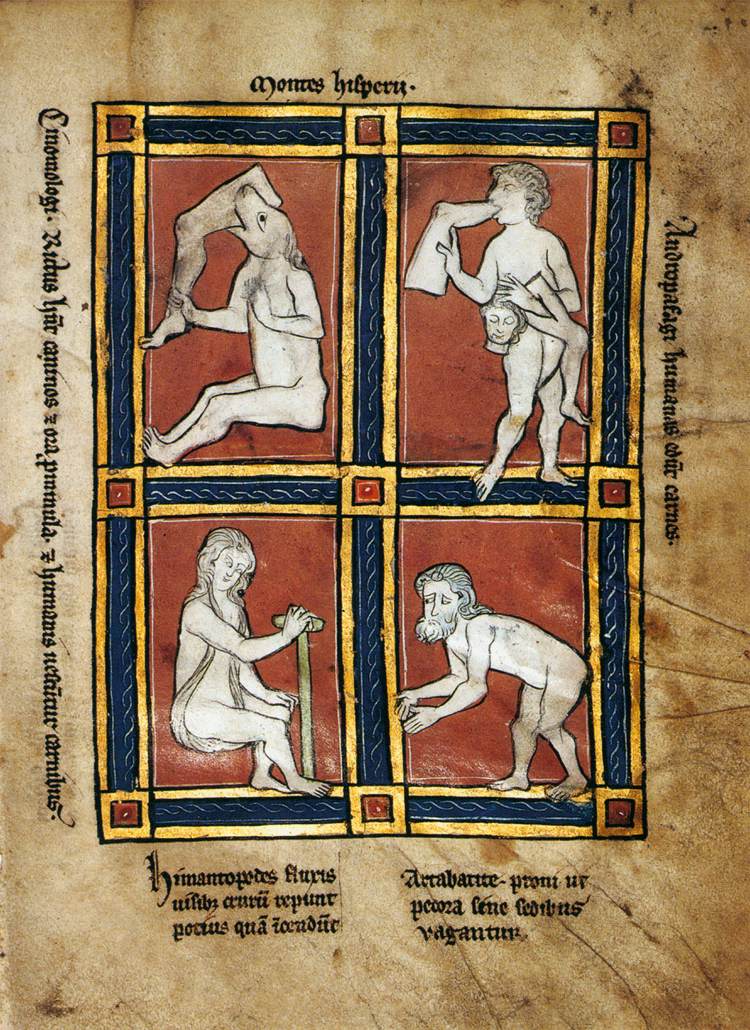 Montes hisperii.
Cinomologi. Rictus hñt caninos ⁊ ora prominula. ⁊ humanis uescuntur carnibus.
Andropafagi humanas edūt carnes.
Himantopodes fluxis
uisibȝ crurū repunt
potius quā īcedūt
Artabatite. proni ut
pecora sine sedibus
vagantur